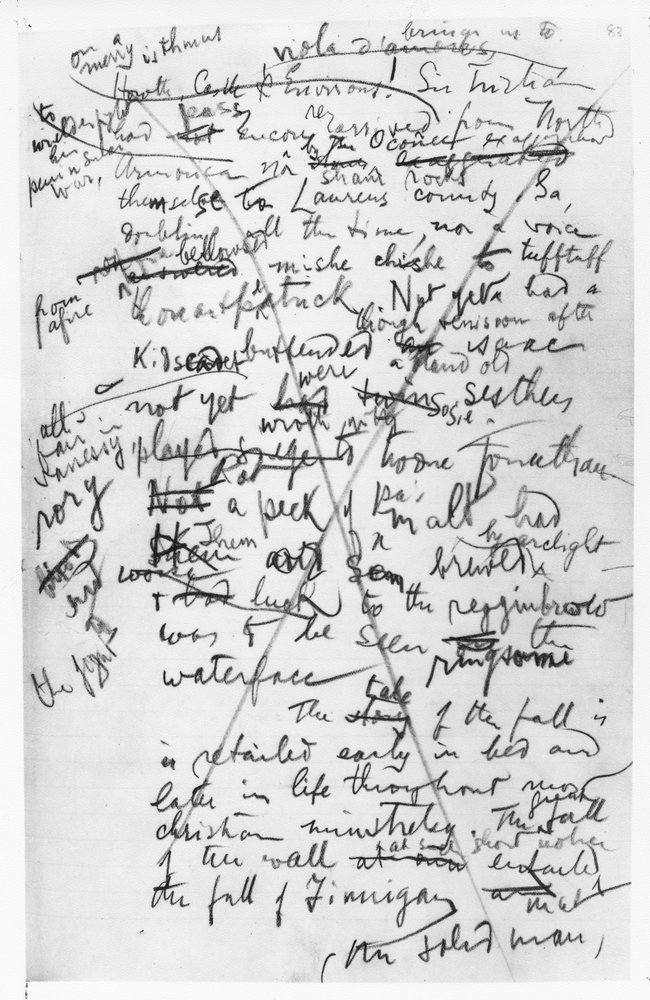 brings us to
83
on a merry isthmus
viola d'amores,
Howth, Castle & Environs! Sir Tristran
pass
had not encore rearrived from North
to wielderfight his peninsular war,
by the Oconee exaggerated
Armorica nor
stream rocks
themselse to Laurens county, Ga,
doubling all the time, nor a voice
from afire
bellowed
answered mishe chishe to tufftuff
thouartpatrick. Not yet had a
though venisoon after
Kidscadet buttended an isaac
were a bland old
not yet had twins sesthers
all's fair in vanessy
wroth with
played siege to twone Jonathan
Rot
Not a peck of pa's malt had
rory
Shem and Son brewed by arclight
end
& bad luck to the regginbrow
to the fight
was to be seen ringsome the
waterface
tale
The story of the fall is
is retailed early in bed and
later in life throughout most
christian minstrelsy. The great fall
at such short notice
of the wall at once entailed
the fall of Finnigan
(the solid man,